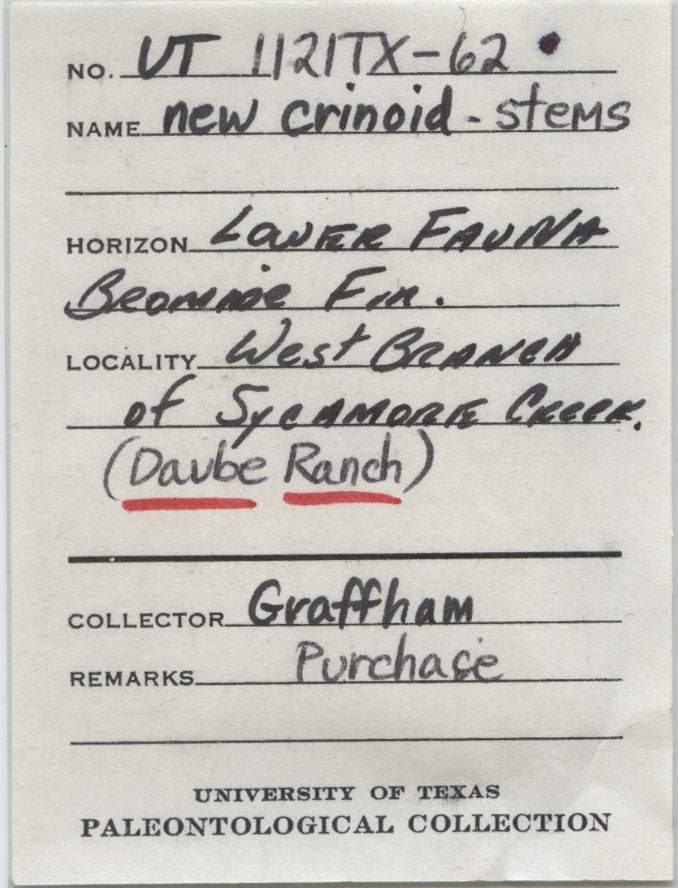 NO. UT 1121TX-62
NAME new crinoid - stems
HORIZON LOWER FAUNA
Bromide Fm.
LOCALITY West BRANCH
of SYCAMORE CREEK.
(Daube Ranch)
COLLECTOR Graffham
REMARKS Purchase
UNIVERSITY OF TEXAS
PALEONTOLOGICAL COLLECTION